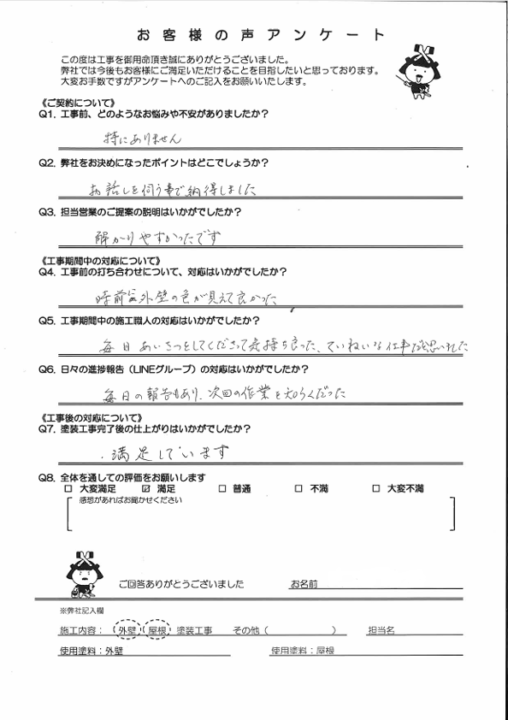 お客様の声アンケート
この度は工事を御用命頂き誠にありがとうございました。
弊社では今後もお客様にご満足いただけることを目指したいと思っております。
大変お手数ですがアンケートへのご記入をお願いいたします。
《ご契約について》
Q1. 工事前、どのようなお悩みや不安がありましたか？
特にありません
Q2. 弊社をお決めになったポイントはどこでしょうか？
お話しを伺う事で納得しました
Q3. 担当営業のご提案の説明はいかがでしたか？
解かりやすかったです
《工事期間中の対応について》
Q4. 工事前の打ち合わせについて、対応はいかがでしたか？
外壁の色が見えて良かった
Q5. 工事期間中の施工職人の対応はいかがでしたか？
毎日あいさつをしてくださって気持ち良った、ていねいな仕事だと思いました
Q6. 日々の進捗報告（LINEグループ）の対応はいかがでしたか？
毎日の報告もあり、次回の作業を
《工事後の対応について》
Q7. 塗装工事完了後の仕上がりはいかがでしたか？
満足しています
Q8. 全体を通しての評価をお願いします
□ 大変満足 ☑ 満足 □ 普通 □ 不満 □ 大変不満
感想があればお聞かせください
ご回答ありがとうございました お名前
※弊社記入欄
施工内容：（外壁）（屋根）塗装工事 その他（ ） 担当名
使用塗料：外壁 使用塗料：屋根